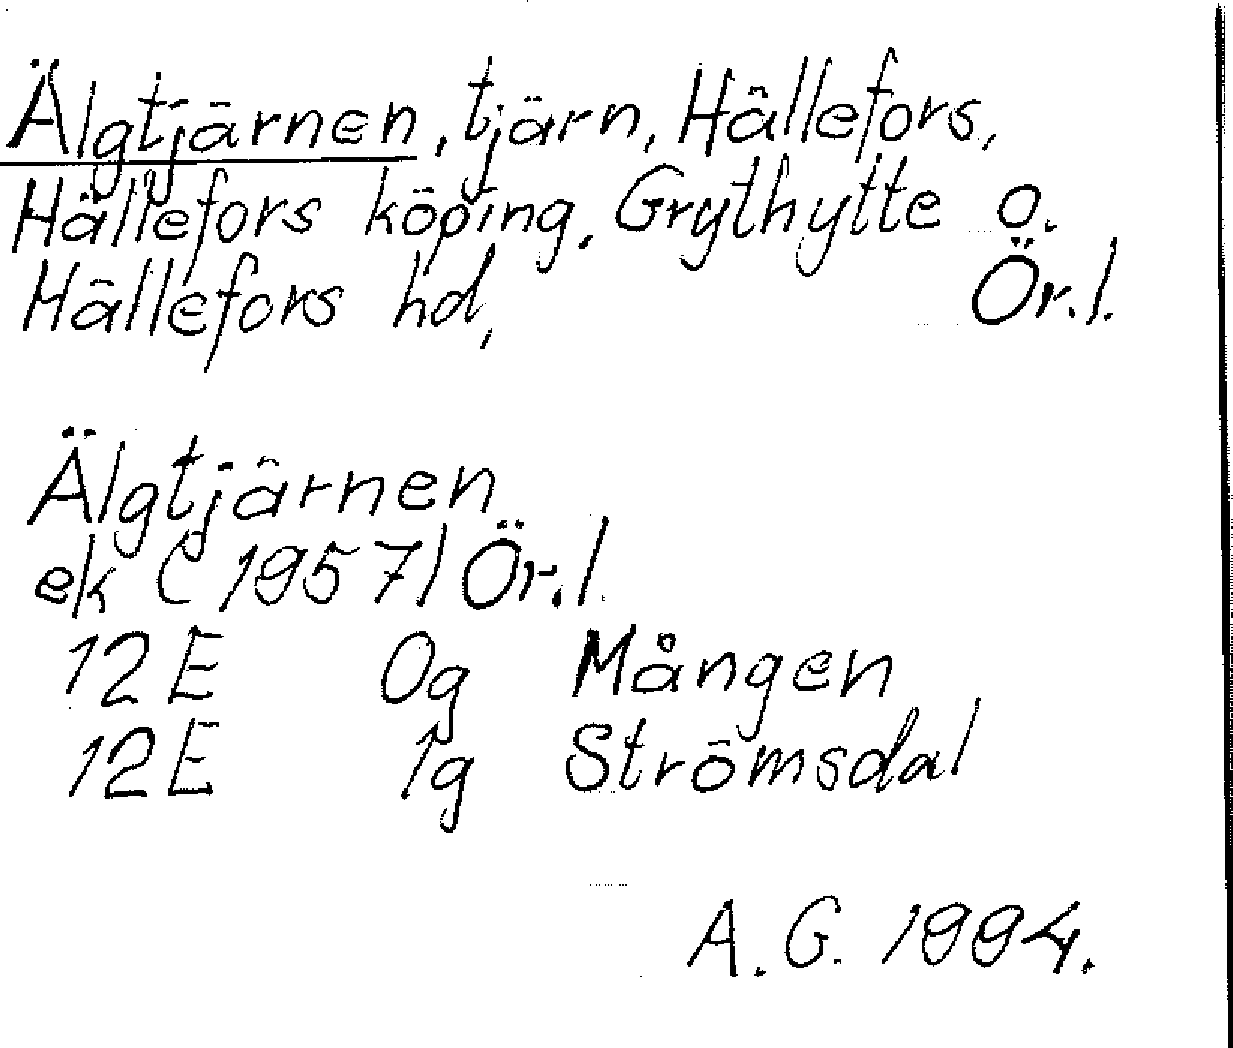 Älgtjärnen, tjärn, Hällefors,
Hällefors köping, Grythytte o.
Hällefors hd, Ör.l.
Älgtjärnen
ek (1957) Ör.l.
12E 0g Mången
12E 1g Strömsdal
A.G. 1994.